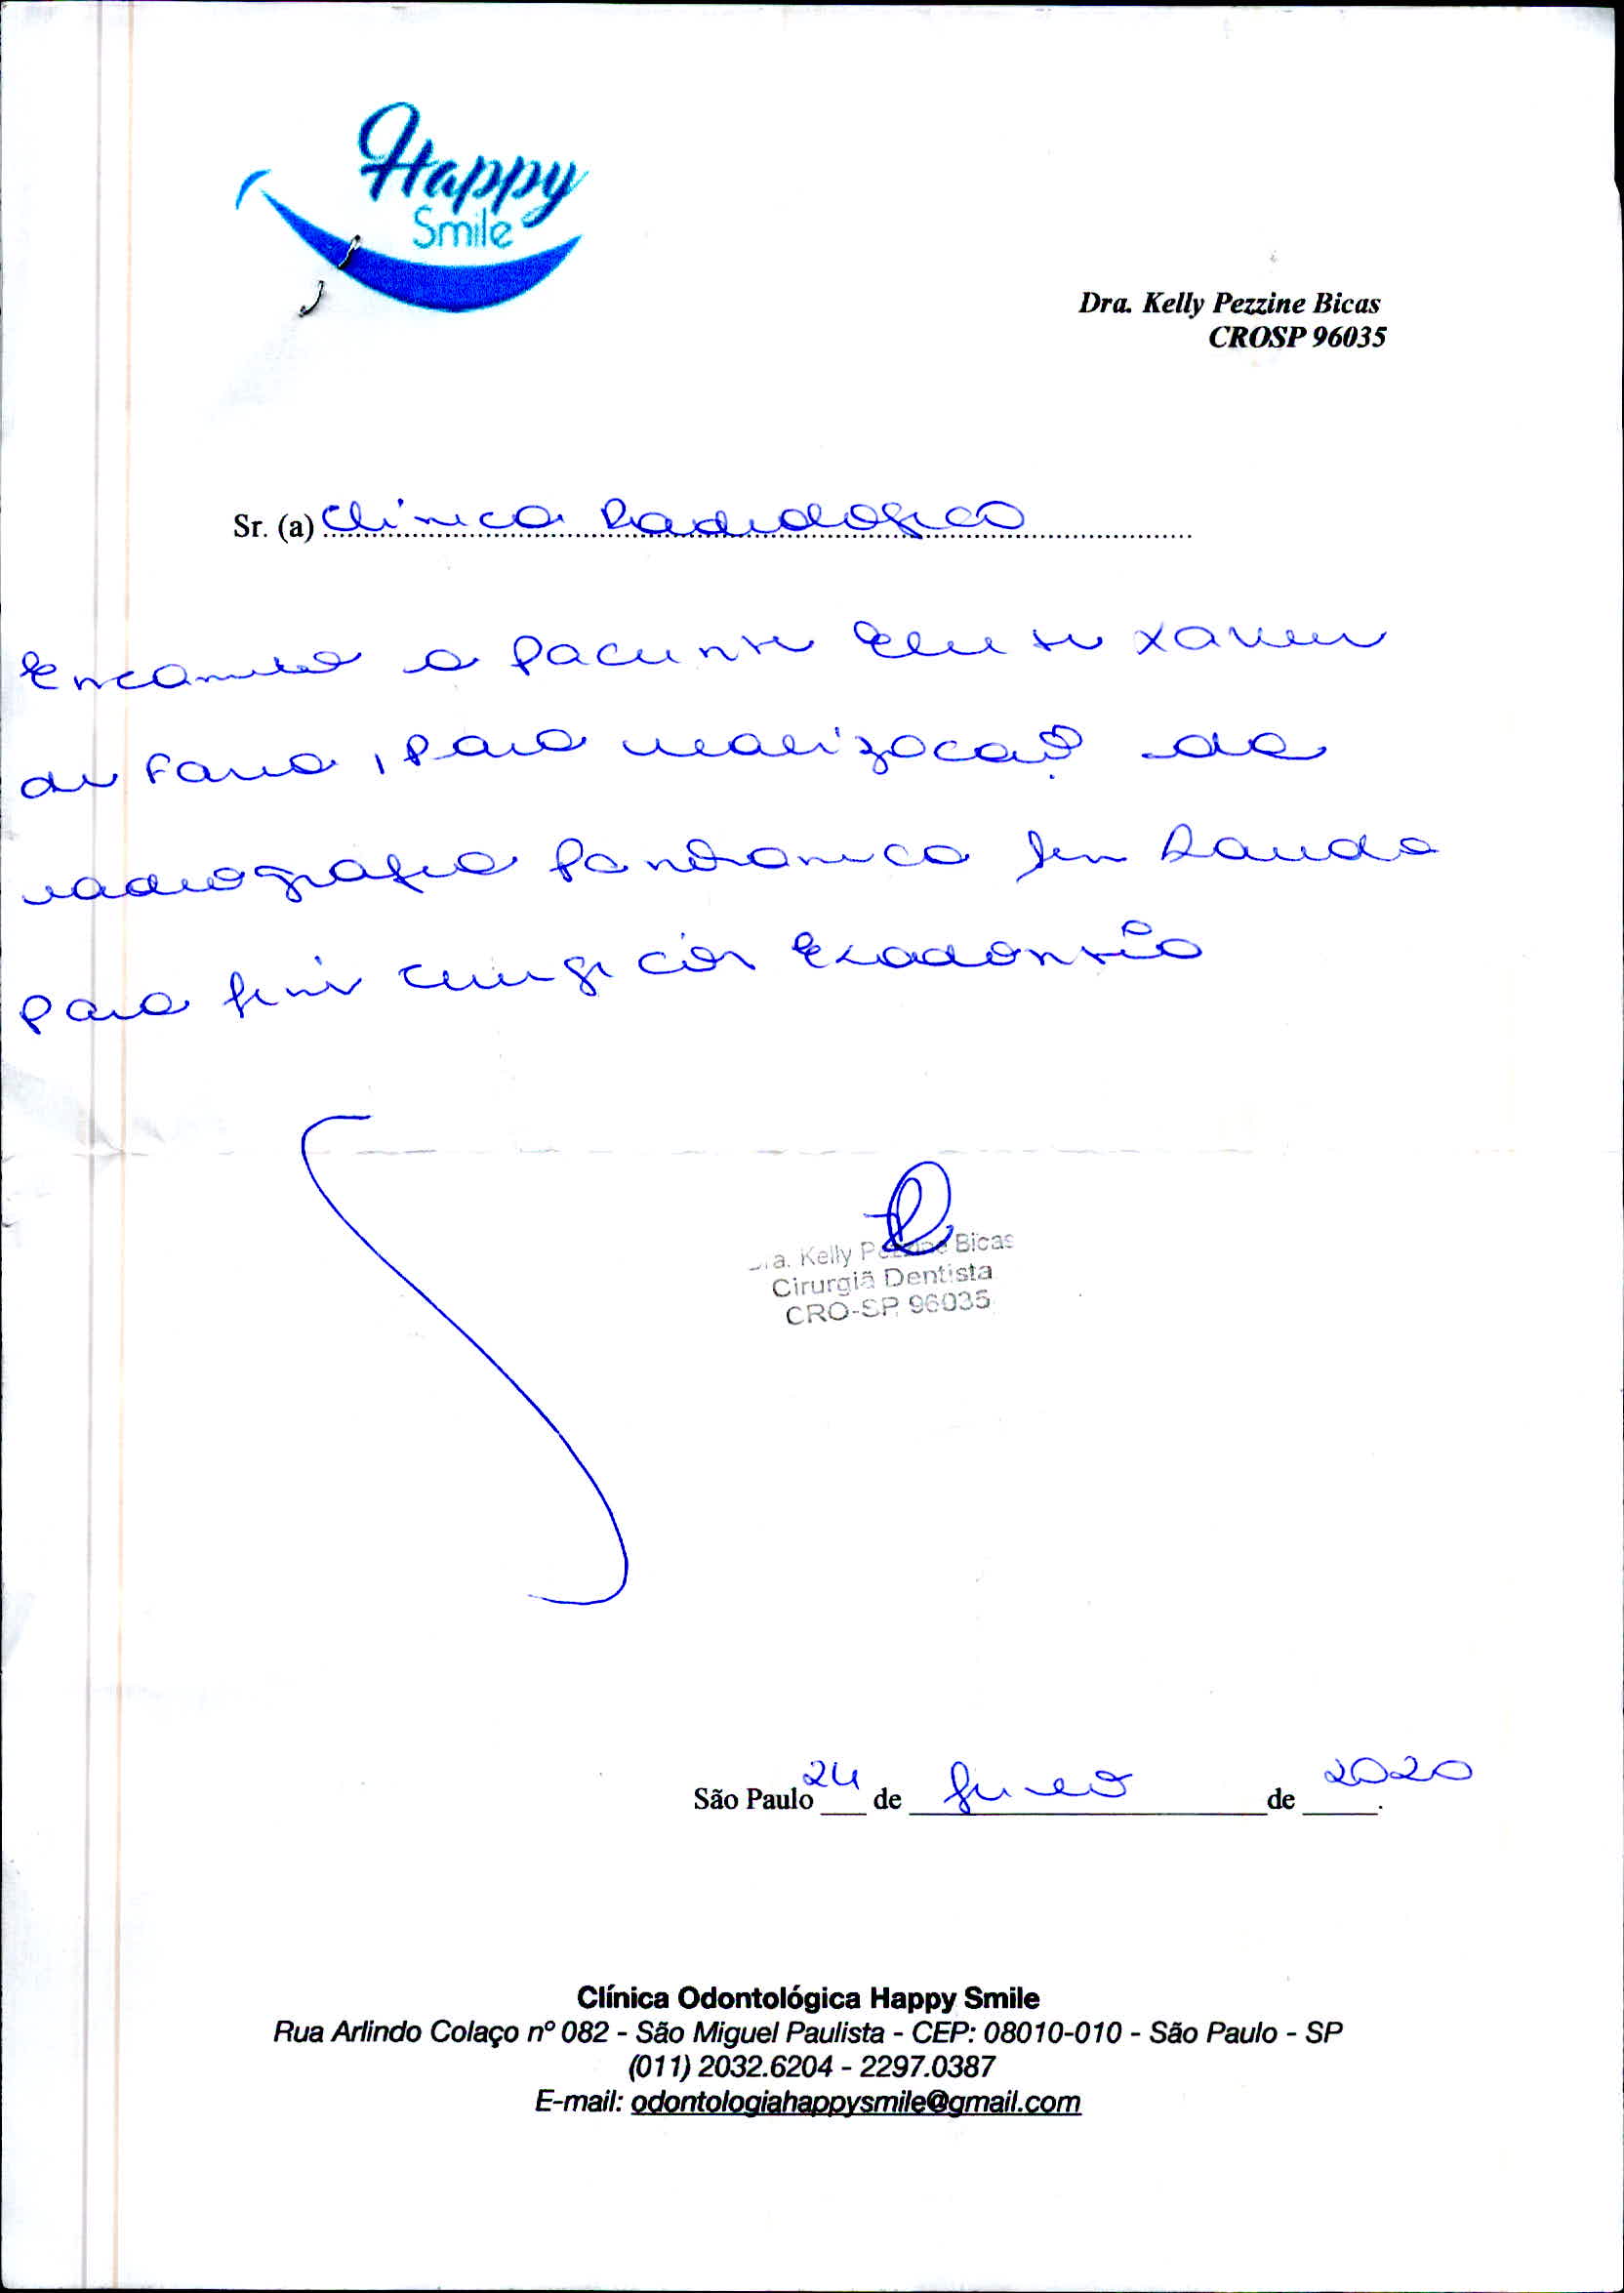 Happy
Smile
Dra. Kelly Pezzine Bicas
CROSP 96035
Sr. (a) Clinica Radiologica
Encaminho a paciente xavier
de Faria, para realização da
radiografia Panoramica sem Laudo
para fins cirurgicos Exodontia
Dra. Kelly Pezzine Bicas
Cirurgiã Dentista
CRO-SP. 96035
São Paulo 24 de de 2020.
Clínica Odontológica Happy Smile
Rua Arlindo Colaço nº 082 - São Miguel Paulista - CEP: 08010-010 - São Paulo - SP
(011) 2032.6204 - 2297.0387
E-mail: odontologiahappysmile@gmail.com